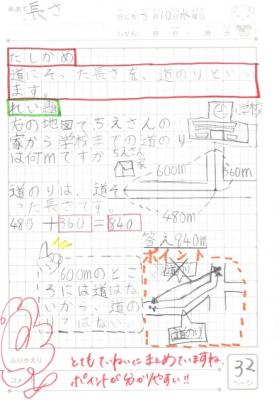 めあて 長さ
日にち 5月10日 水曜日
たしかめ
道にそった長さを、道のりといいます。
れい題
右の地図で、ちえさんの
家から学校までの道のり
は何mですか
学校
ちえさん
家
600m
360m
480m
道のりは、道そ
った長さです
480+360=840
答え840m
600mのとこ
ろには道はな
いから、道の
りではない。
ポイント
道のり
ふりかえり
コメント
とてもていねいにまとめていますね。
ポイントが分かりやすい!!
32
ページ